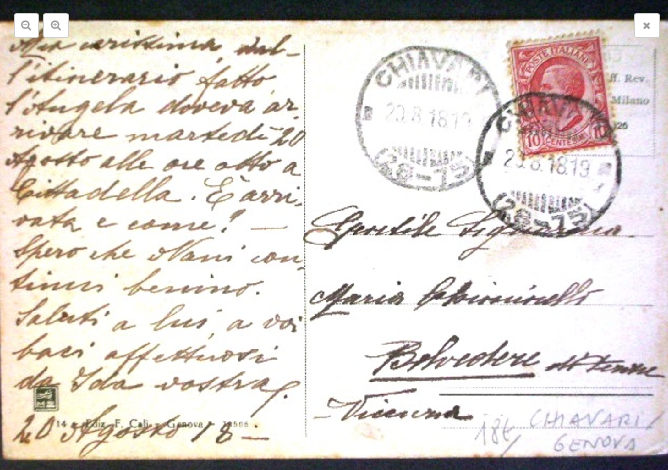 Mia carissima, sul-
l'itinerario fatto
l'Angela doveva ar-
rivare martedì 20
Agosto alle ore otto a
Cittadella. È arri-
vata e come? —
Spero che Nani con-
tinui benino.
Saluti a lui, a voi
baci affettuosi
da Ida vostra
20 Agosto 18 —
14 - Ediz. F. Cali - Genova
CHIAVARI
20.8.18.19
(28-75)
POSTE ITALIANE
10 CENTESIMI 10
CHIAVARI
20.8.18.19
(28-75)
ff. Rev.
Milano
Gentile Signorina
Maria
Belvedere di Tezze
Vicenza
18€ CHIAVARI /
GENOVA